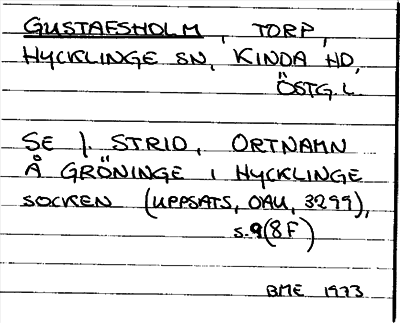 GUSTAFSHOLM, TORP,
HYCKLINGE SN, KINDA HD,
ÖSTG. L.
SE J. STRID, ORTNAMN
Å GRÖNINGE I HYCKLINGE
SOCKEN (UPPSATS, OAU, 3299),
S. 9 (8F)
BME 1973